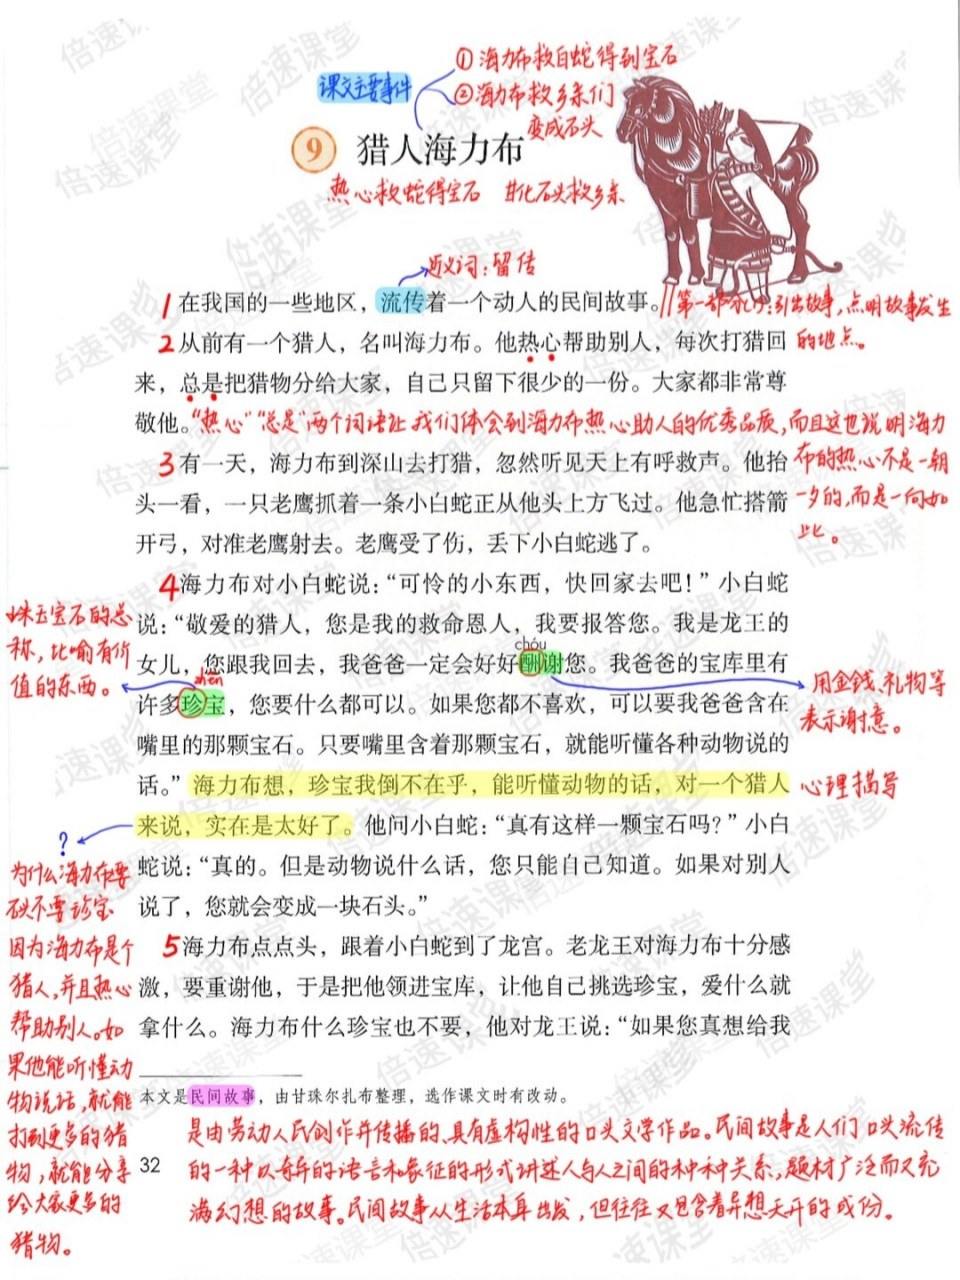 ① 海力布救白蛇得到宝石
课文主要事件
② 海力布救乡亲们
变成石头
9 猎人海力布
热心救蛇得宝石 甘化石头救乡亲
近义词：留传
1 在我国的一些地区，流传着一个动人的民间故事。
第一部分：引出故事，点明故事发生
的地点。
2 从前有一个猎人，名叫海力布。他热心帮助别人，每次打猎回
来，总是把猎物分给大家，自己只留下很少的一份。大家都非常尊
敬他。
“热心”“总是”两个词语让我们体会到海力布热心助人的优秀品质，而且这也说明海力
布的热心不是一朝
一夕的，而是一向如
此。
3 有一天，海力布到深山去打猎，忽然听见天上有呼救声。他抬
头一看，一只老鹰抓着一条小白蛇正从他头上方飞过。他急忙搭箭
开弓，对准老鹰射去。老鹰受了伤，丢下小白蛇逃了。
4 海力布对小白蛇说：“可怜的小东西，快回家去吧！”小白蛇
说：“敬爱的猎人，您是我的救命恩人，我要报答您。我是龙王的
chóu
女儿，您跟我回去，我爸爸一定会好好酬谢您。我爸爸的宝库里有
zhēn
许多珍宝，您要什么都可以。如果您都不喜欢，可以要我爸爸含在
嘴里的那颗宝石。只要嘴里含着那颗宝石，就能听懂各种动物说的
话。”海力布想，珍宝我倒不在乎，能听懂动物的话，对一个猎人
来说，实在是太好了。他问小白蛇：“真有这样一颗宝石吗？”小白
蛇说：“真的。但是动物说什么话，您只能自己知道。如果对别人
说了，您就会变成一块石头。”
珠玉宝石的总
称，比喻有价
值的东西。
用金钱、礼物等
表示谢意。
心理描写
?
为什么海力布要
不要珍宝
因为海力布是个
猎人，并且热心
帮助别人。如
果他能听懂动
物说话，就能
打到更多的猎
物，就能分享
给大家更多的
猎物。
5 海力布点点头，跟着小白蛇到了龙宫。老龙王对海力布十分感
激，要重谢他，于是把他领进宝库，让他自己挑选珍宝，爱什么就
拿什么。海力布什么珍宝也不要，他对龙王说：“如果您真想给我
本文是民间故事，由甘珠尔扎布整理，选作课文时有改动。
是由劳动人民创作并传播的、具有虚构性的口头文学作品。民间故事是人们口头流传
的一种以奇异的语言和象征的形式讲述人与人之间的种种关系，题材广泛而又充
满幻想的故事。民间故事从生活本身出发，但往往又包含着异想天开的成份。
32
倍速课堂